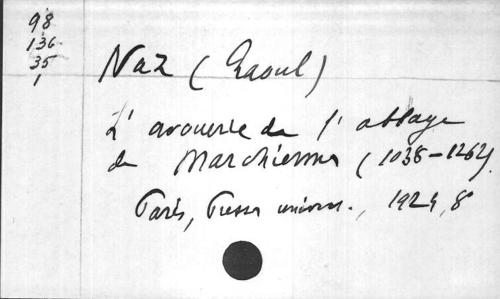 98
136
35
1
Naz (Raoul)
L'avouerie de l'abbaye
de Marchiennes (1038-1262).
Paris, Presses univers., 1924, 8°